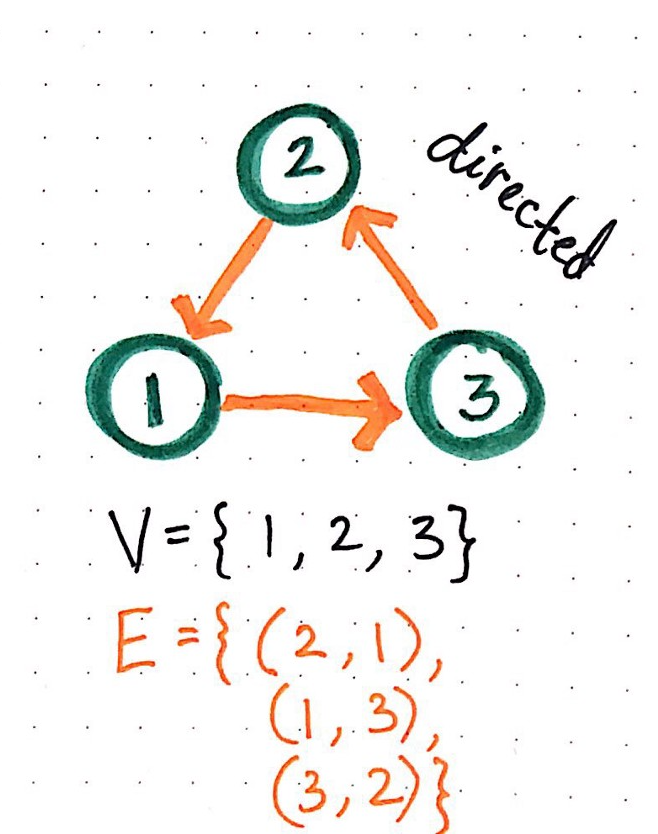 2
directed
1
3
V={1, 2, 3}
E={(2,1),
(1,3),
(3,2)}